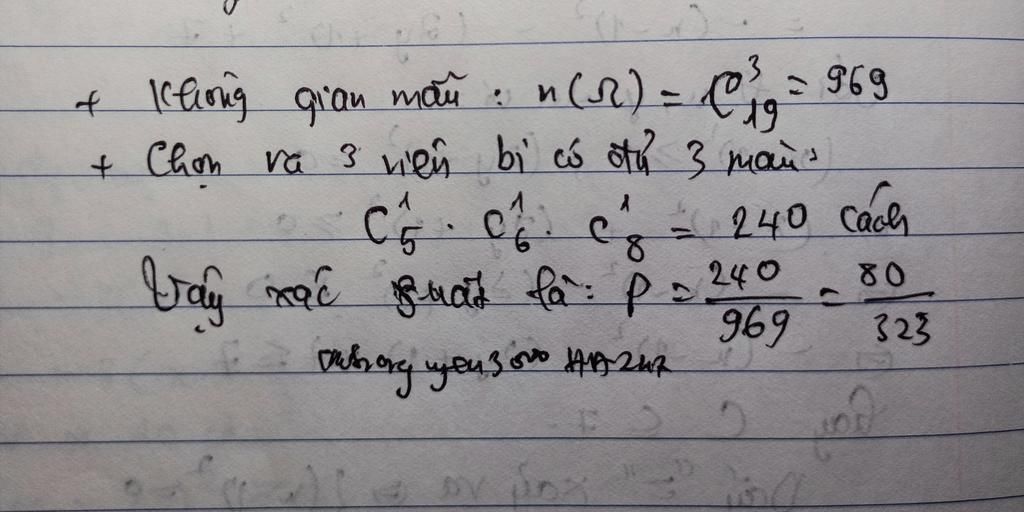 + Không gian mẫu : n(Ω) = C³₁₉ = 969
+ Chọn ra 3 viên bi có đủ 3 màu :
C¹₅ . C¹₆ . C¹₈ = 240 cách
Vậy xác suất là : P = 240/969 = 80/323